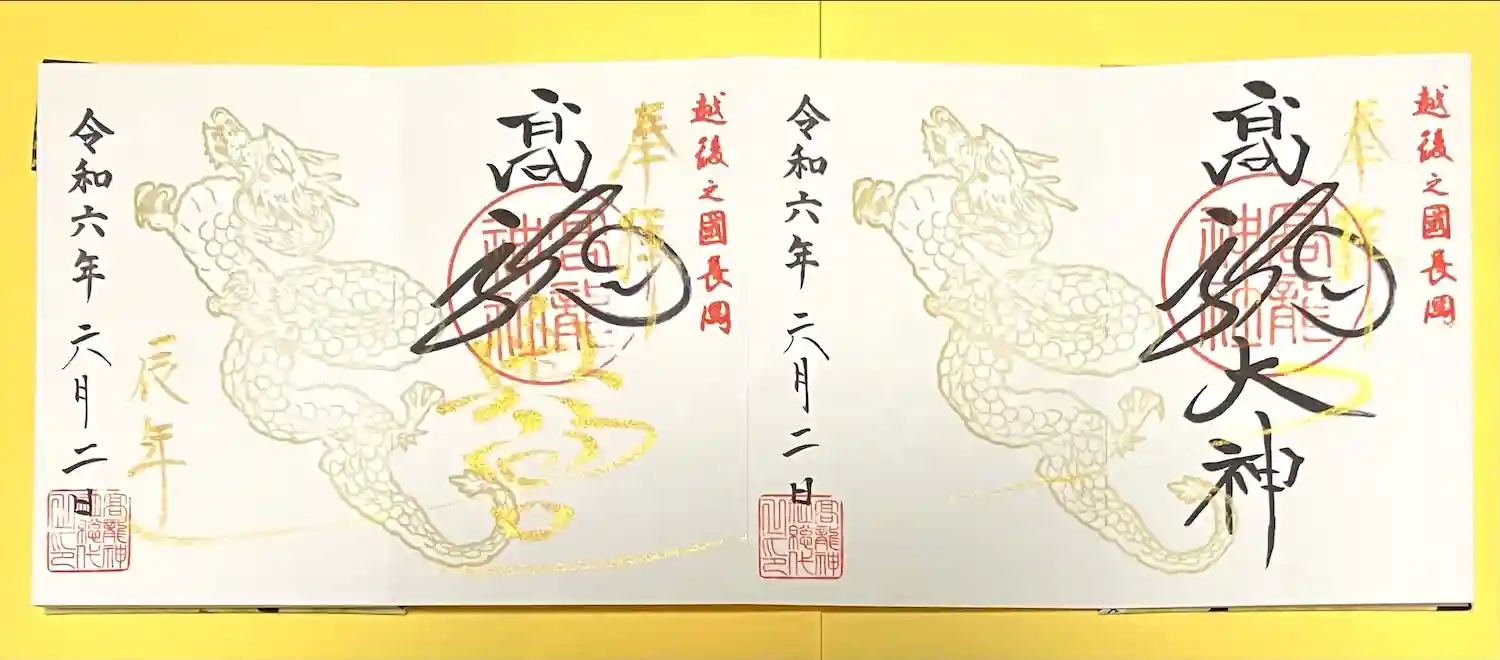 越後之國長岡
奉拝
高龍大神
高龍神社
令和六年 六月二日
高龍神社総代之印
越後之國長岡
奉拝
高龍
高龍神社
辰年
令和六年 六月二日
高龍神社総代之印